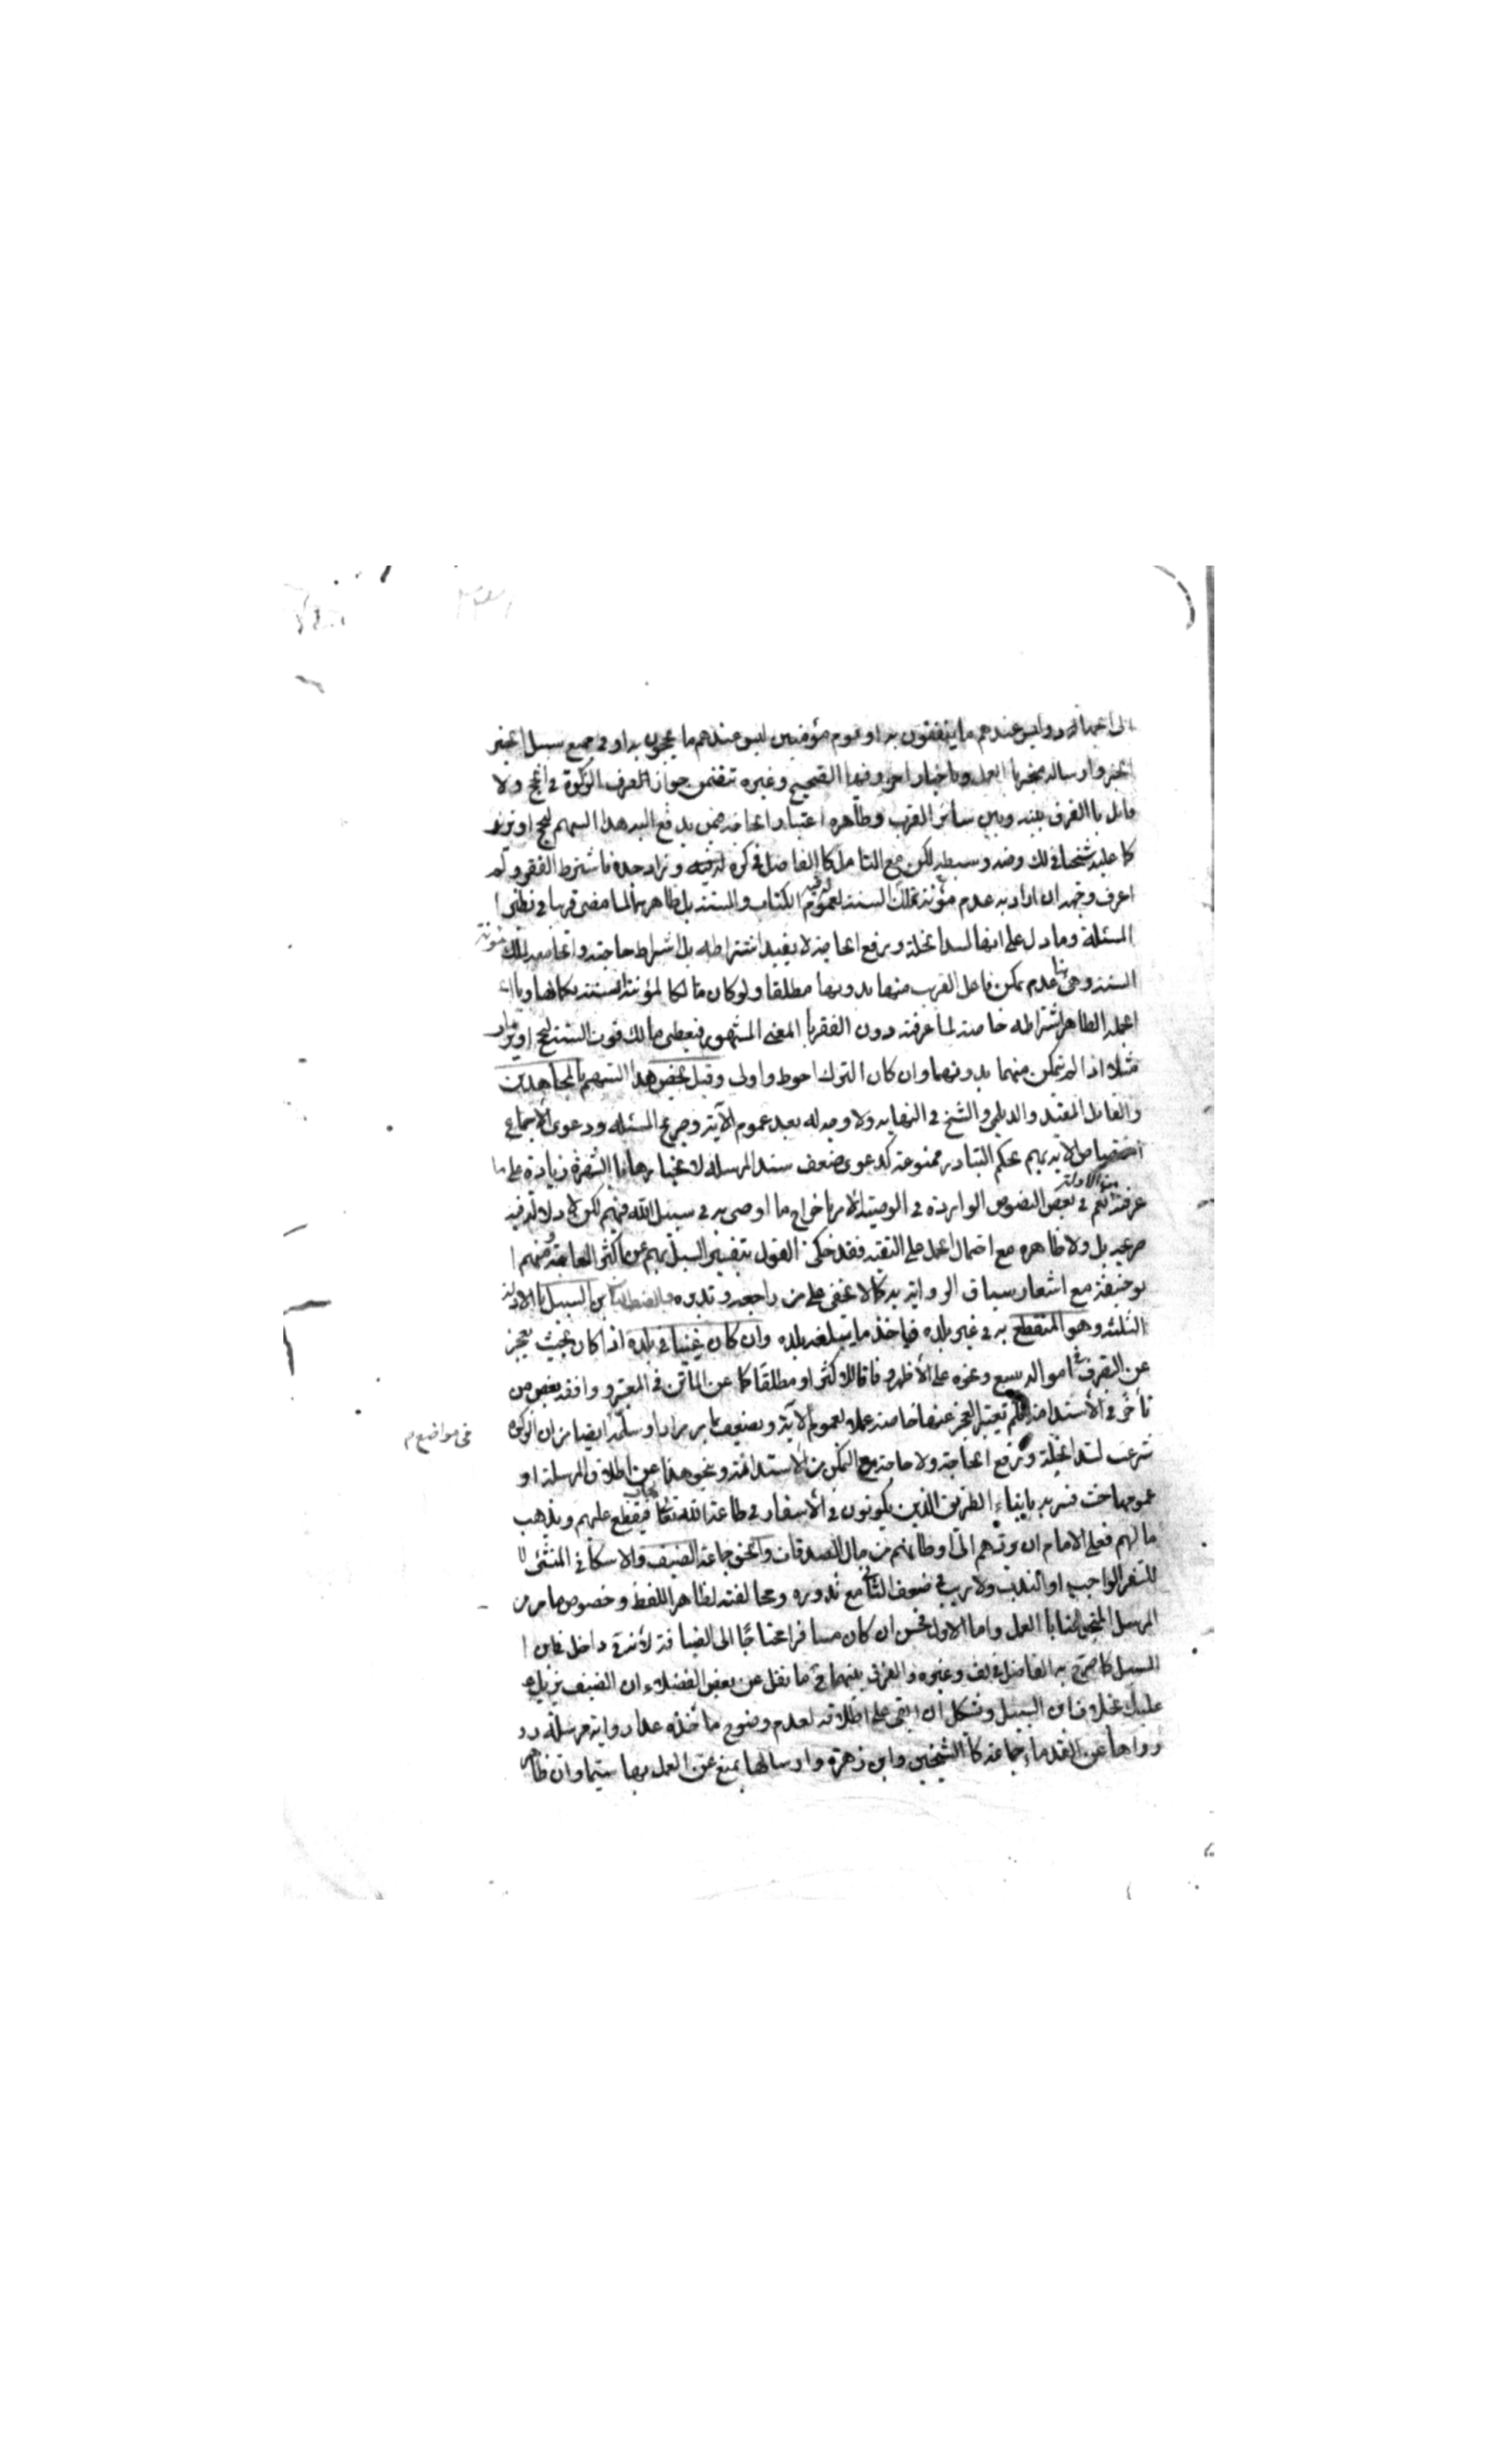 الى الجهاد وليس عندهم ما ينفقون به او قوم مؤمنين ليس عندهم ما يحجون به او في جميع سبل الخير
الخبر وارساله منجبر بالعمل وباخبار اخر وفيها الصحيح وغيره تتضمن جواز الصرف الزكوة في الحج ولا
قائل بالفرق بينه وبين سائر القرب وظاهره اعتبار الحاجة فيمن يدفع اليه هذا السهم لحج او زيارة
كما عليه شيخنا في لك وضه وسبطه لكن مع التامل كالفاضل في كره لد فيه وزاد جده فاشترط الفقر ولم
اعرف وجهه ان اراد به عدم مؤنة تملك السنة لعموم الكتاب والسنة بل ظاهرهما لما مضى قريبا في نظير ا
المسئلة وما دل على انها لسد الخلة ورفع الحاجة لا يفيد اشتراطه بل اشتراط حاجته والحاجة لملك مؤنة
السنة وهي هنا عدم تمكن فاعل القرب منها بدونها مطلقا ولو كان مالكا لمؤنة السنة بكمالها وبا
لجملة الظاهر اشتراطه خاصة لما عرفته دون الفقر بالمعنى المشهور فيعطى مالك قوت السنة لحج او زيارة
مثلا اذا لم يتمكن منهما بدونها وان كان الترك احوط واولى وقيل يختص هذا السهم بالمجاهدين
والقائل المفيد والديلمي والشيخ في النهاية ولا وجه له بعد عموم الآية وصريح المسئلة ودعوى الاجماع
اختصاص الاية بهم بحكم التبادر ممنوعة كدعوى ضعف سند المرسلة لانجبارها بالشهرة زيادة على ما
عرفته من الادلة نعم في بعض النصوص الواردة في الوصية الامر باخراج ما اوصى به في سبيل الله فيهم لكن لا دلالة فيه
صريحه بل ولا ظاهره مع احتمال الحمل على التقية فقد حكى القول بتفسير السبيل بهم عن اكثر العامة ومنهم ا
بو حنيفة مع اشعار سياق الرواية به كما لا يخفى على من راجعه وتدبره وابن السبيل بالادلة
الثلثة وهو المنقطع به في غير بلده فياخذ ما يبلغه بلده وان كان غنيا في بلده اذا كان بحيث يعجز
عن التصرف في امواله ببيع ونحوه على الاظهر وفاقا للاكثر او مطلقا كما عن الماتن في المعتبر ووافقه بعض من
تأخر في الاستدانة فلم يعتبر العجز عنها خاصة عملا بعموم الآية ويضعف بما مر مرارا وسلمه ايضا من ان الزكوة
في مواضع م
شرعت لسد الخلة ورفع الحاجة ولا حاجة مع التمكن من الاستدانة ونحوهما عن اطلاق المرسلة او
عمومها حيث فسر به بابناء الطريق الذين يكونون في الاسفار في طاعة الله تعالى فيقطع عليهم ويذهب
مالهم فعلى الامام ان يردهم الى اوطانهم من مال الصدقات والحق جماعة الضيف والاسكافي المنشئ
للسفر الواجب او الندب ولا ريب في ضعف الثاني مع ندوره ومخالفته لظاهر اللفظ وخصوص ما مر من
المرسل المنجبر هنا بالعمل واما الاول فحسن ان كان مسافرا محتاجا الى الضيافة لانه داخل في ابن ا
لسبيل كما صرح به الفاضل في لف وغيره والفرق بينهما في ما نقل عن بعض الفضلاء ان الضيف نزيل
عليك بخلاف ابن السبيل ويشكل ان ابقى على اطلاقه لعدم وضوح ماخذه عدا رواية مرسلة
رواها عن القدماء جماعة كالشيخين وابن زهرة وارسالها يمنع عن العمل بها سيما وان ظاهر